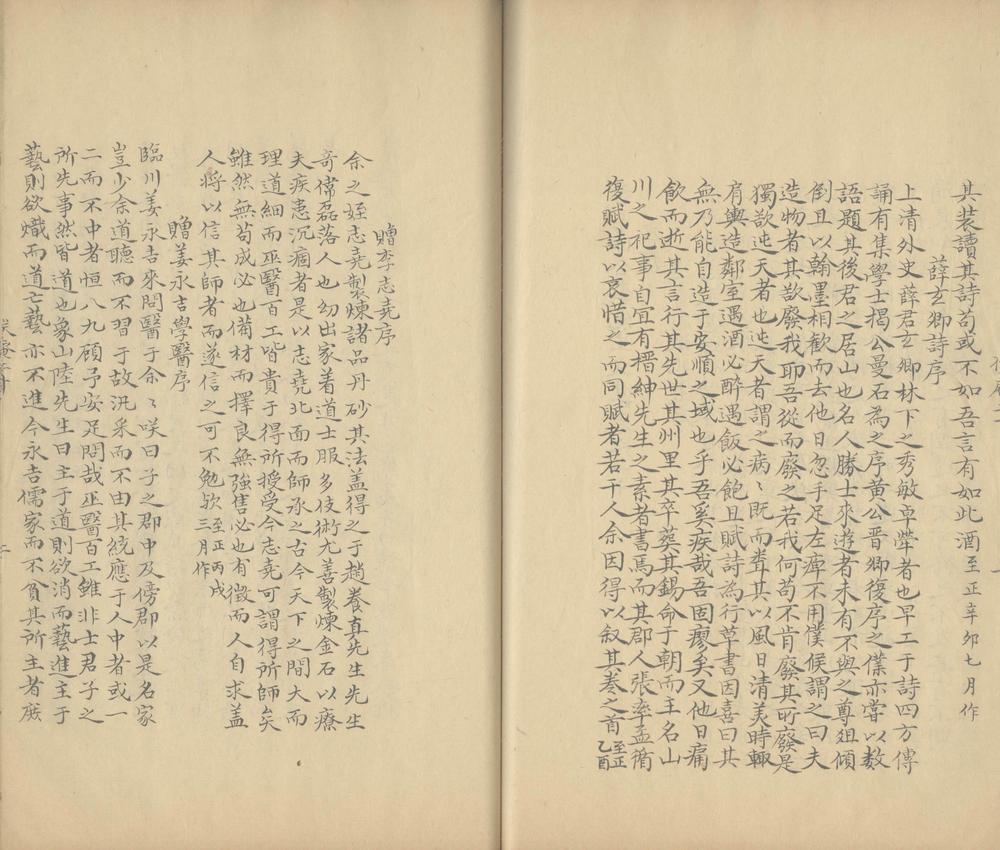 其裝讀其詩苟或不如吾言有如此酒至正辛夘七月作
薛玄卿詩序
上清外史薛君玄卿林下之秀敏卓犖者也早工于詩四方傳
誦有集學士揭公曼石為之序黄公晋卿復序之僕亦嘗以数
語題其後君之居山也名人勝士來遊者未有不與之尊俎傾
倒且以翰墨相歡而去他日忽手足左痺不用僕候謂之曰夫
造物者其欲廢我耶吾從而廢之若我何苟不肯廢其所廢是
獨欲迯天者也迯天者謂之病〻既而聾其以風日清美時輙
肩輿造鄰室遇酒必醉遇飯必飽且賦詩為行草書因喜曰其
無乃能自造于安順之域也乎吾奚疾哉吾固廖矣又他日痛
飲而逝其言行其先世其州里其卒葬其錫命于朝而主名山
川之祀事自宜有搢紳先生之素者書焉而其郡人張率孟循
復賦詩以哀惜之而同賦者若干人余因得以叙其卷之首至正乙酉
贈李志堯序
余之姪志堯製煉諸品丹砂其法盖得之于趙養真先生先生
奇偉磊落人也幼出家着道士服多伎術尤善製煉金石以療
夫疾患沉痼者是以志堯北面而師承之古今天下之間大而
理道細而巫醫百工皆貴于得所授受今志堯可謂得所師矣
雖然無苟成必也備材而擇良無強售必也有徵而人自求盖
人將以信其師者而遂信之可不勉欤至正丙戌三月作
贈姜永吉學醫序
臨川姜永吉來問醫于余〻咲曰子之郡中及傍郡以是名家
豈少余道聽而不習于故汎采而不由其統應于人中者或一
二而不中者恒八九顧予安足問哉巫醫百工雖非士君子之
所先事然皆道也象山陸先生曰主于道則欲消而藝進主于
藝則欲熾而道亡藝亦不進今永吉儒家而不貧其所主者庶